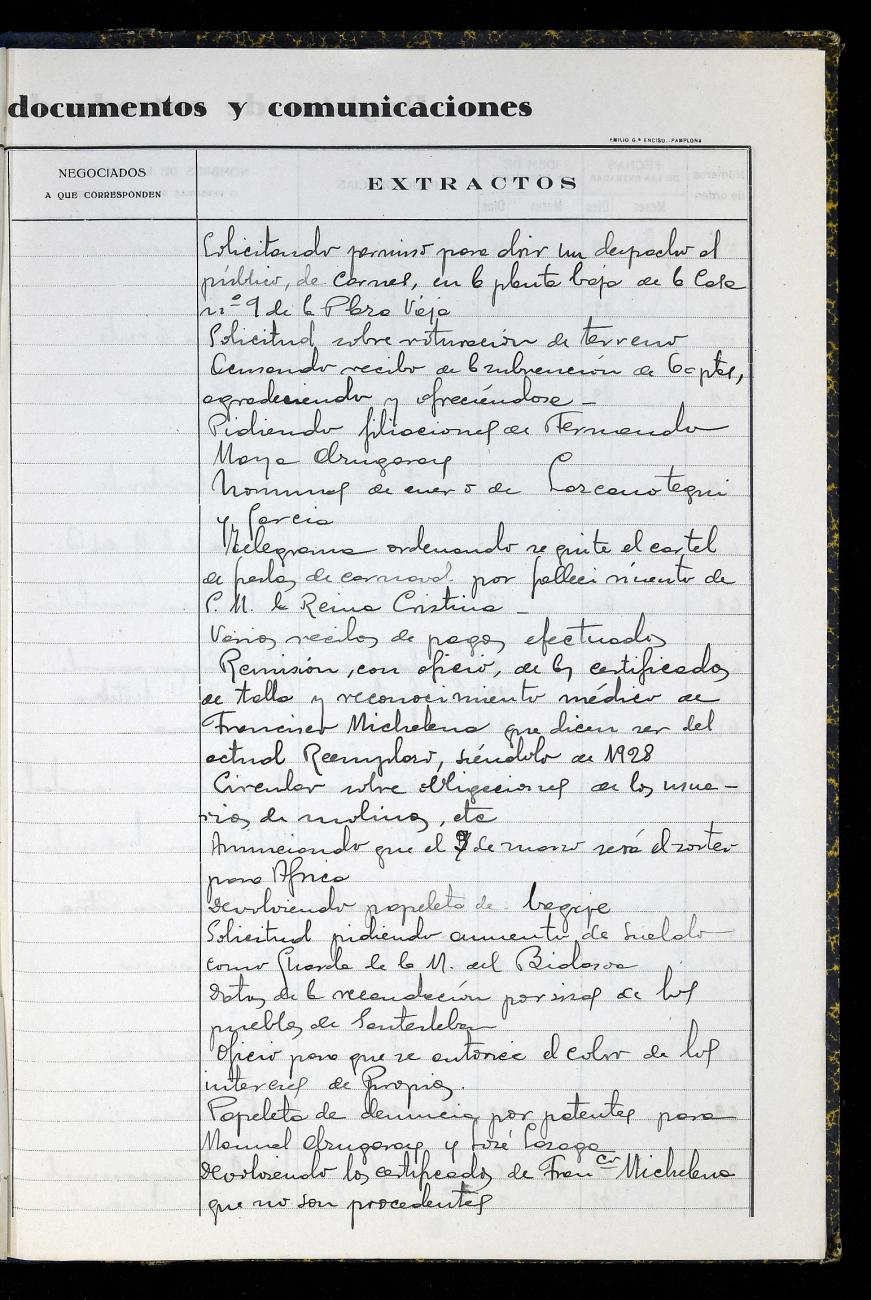 documentos y comunicaciones
EMILIO G.ª ENCISO.-PAMPLONA
NEGOCIADOS
A QUE CORRESPONDEN
EXTRACTOS
Solicitando permiso para abrir un despacho al
público, de carnes, en la planta baja de la Casa
nº 9 de la Plaza Vieja
Solicitud sobre roturación de terreno
Acusando recibo de la subvención de 60 ptas,
agradeciendo y ofreciéndose -
Pidiendo filiaciones de Fernando
Maya
Nominas de enero de Lazcanotegui
y Garcia
Telegrama ordenando se quite el cartel
de fiestas de carnaval por fallecimiento de
S. M. la Reina Cristina -
Varios recibos de pagos efectuados
Remisión, con oficio, de los certificados
de talla y reconocimiento médico de
Francisco Michelena que dicen ser del
actual Reemplazo, siéndolo de 1928
Circular sobre obligaciones de los usua-
rios de molinos, etc
Anunciando que el de marzo será el sorteo
para Africa
Devolviendo papeleta de bagaje
Solicitud pidiendo aumento de sueldo
como Guarda de la M. del Bidasoa
Datos de la recaudación por de los
pueblos de Santesteban
Oficio para que se autorice el cobro de los
intereses de Propios.
Papeleta de denuncia por patentes para
Manuel y José
Devolviendo los certificados de Franco Michelena
que no son procedentes